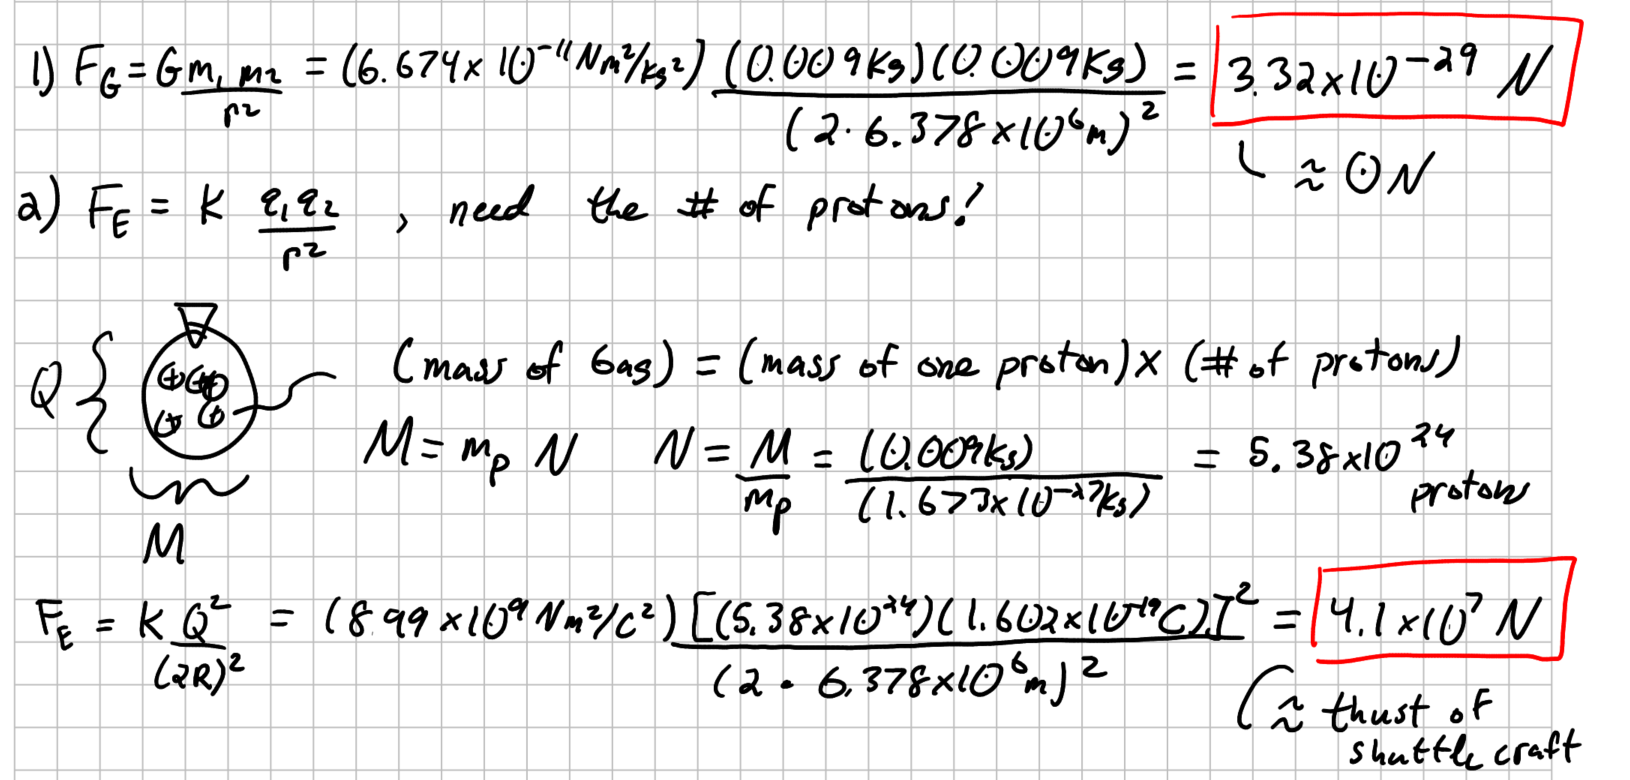 1) F_G = G m₁ m₂ / r² = (6.674 x 10⁻¹¹ Nm²/kg²) (0.009 kg)(0.009 kg) / (2 · 6.378 x 10⁶ m)² = 3.32 x 10⁻²⁹ N
≈ 0 N
2) F_E = K q₁ q₂ / r² , need the # of protons!
Q (mass of Gas) = (mass of one proton) x (# of protons)
M = m_p N N = M / m_p = (0.009 kg) / (1.673 x 10⁻²⁷ kg) = 5.38 x 10²⁴ protons
M
F_E = K Q² / (2R)² = (8.99 x 10⁹ Nm²/C²) [(5.38 x 10²⁴)(1.602 x 10⁻¹⁹ C)]² / (2 · 6.378 x 10⁶ m)² = 4.1 x 10⁷ N
≈ thust of
shuttle craft